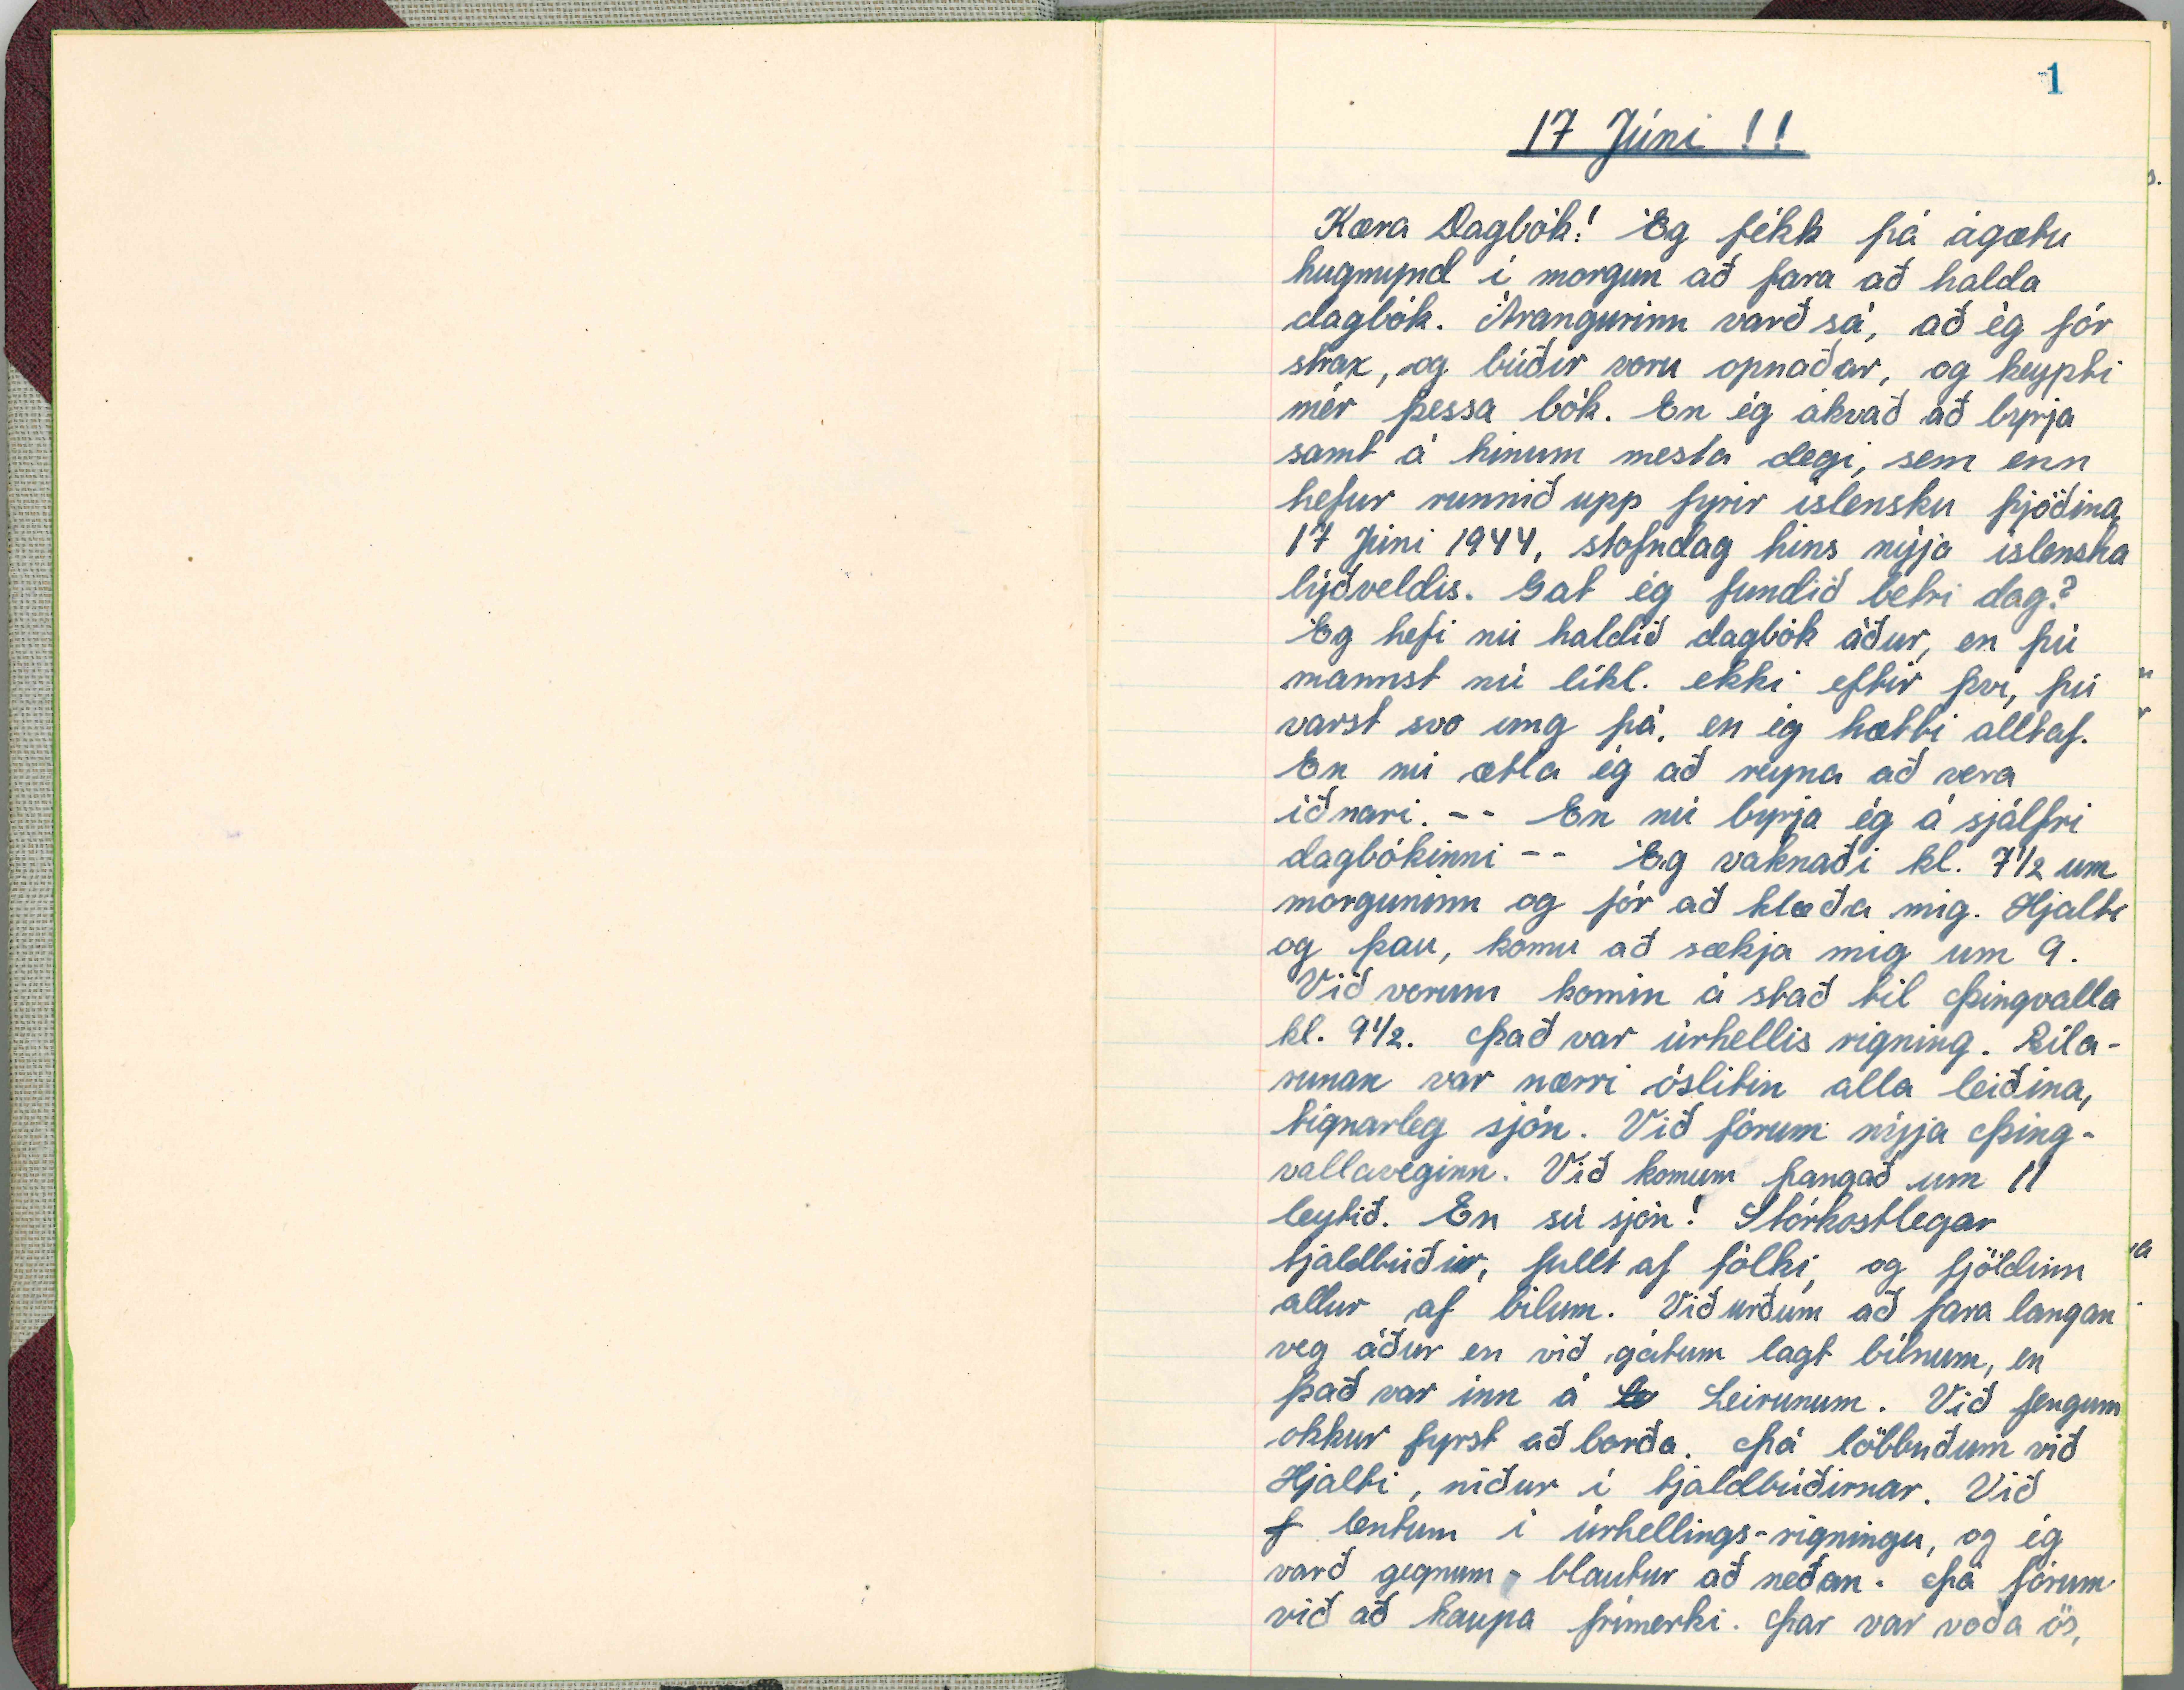 1
17 Júni !!
Kæra Dagbók! Ég fékk þá ágætu
hugmynd í morgun að fara að halda
dagbók. Árangurinn varð sá, að ég fór
strax, og búðir voru opnaðar, og keypti
mér þessa bók. En ég ákvað að byrja
samt á hinum mesta degi, sem enn
hefur runnið upp fyrir íslensku þjóðina,
17 Júni 1944, stofndag hins nýja íslenska
lýðveldis. Gat ég fundið betri dag?
Ég hefi nú haldið dagbók áður, en þú
mannst nú líkl. ekki eftir því, þú
varst svo ung þá, en ég hætti alltaf.
En nú ætla ég að reyna að vera
iðnari. -- En nú byrja ég á sjálfri
dagbókinni -- Ég vaknaði kl. 7 1/2 um
morguninn og fór að klæða mig. Hjalti
og þau, komu að sækja mig um 9.
Við vorum komin á stað til Þingvalla
kl. 9 1/2. Það var úrhellis rigning. Bíla-
runan var nærri óslitin alla leiðina,
tignarleg sjón. Við fórum nýja Þing-
vallaveginn. Við komum þangað um 11
leytið. En sú sjón! Stórkostlegar
tjaldbúðir, fullt af fólki, og fjöldinn
allur af bílum. Við urðum að fara langan
veg áður en við gátum lagt bílnum, en
það var inn á Le Leirunum. Við fengum
okkur fyrst að borða. Þá löbbuðum við
Hjalti, niður í tjaldbúðirnar. Við
f lentum í úrhellings-rigningu, og ég
varð gegnum-blautur að neðan. Þá fórum
við að kaupa frímerki. Þar var voða ös,